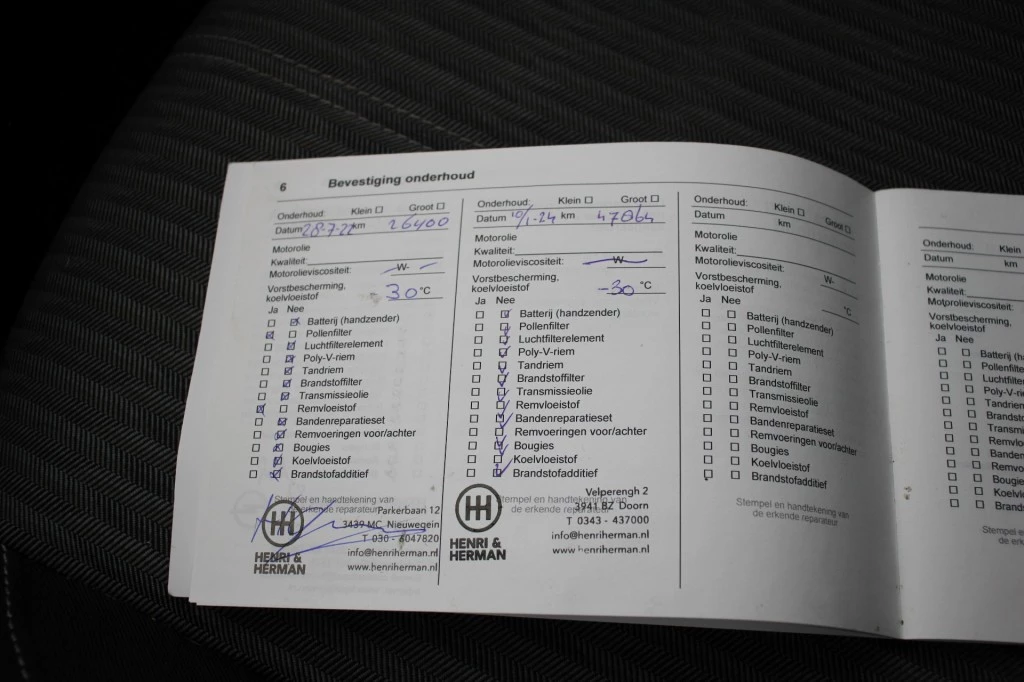 6 Bevestiging onderhoud
Onderhoud: Klein Groot
Datum 28-7-22 km 26400
Motorolie
Kwaliteit:
Motorolieviscositeit: -W-
Vorstbescherming,
koelvloeistof -30 °C
Ja Nee
Batterij (handzender)
Pollenfilter
Luchtfilterelement
Poly-V-riem
Tandriem
Brandstoffilter
Transmissieolie
Remvloeistof
Bandenreparatieset
Remvoeringen voor/achter
Bougies
Koelvloeistof
Brandstofadditief
Stempel en handtekening van
de erkende reparateur
Parkerbaan 12
3439 MC Nieuwegein
T 030 - 6047820
info@henriherman.nl
www.henriherman.nl
HH
HENRI &
HERMAN
Onderhoud: Klein Groot
Datum 10/1-24 km 47064
Motorolie
Kwaliteit:
Motorolieviscositeit: W
Vorstbescherming,
koelvloeistof -30 °C
Ja Nee
Batterij (handzender)
Pollenfilter
Luchtfilterelement
Poly-V-riem
Tandriem
Brandstoffilter
Transmissieolie
Remvloeistof
Bandenreparatieset
Remvoeringen voor/achter
Bougies
Koelvloeistof
Brandstofadditief
Stempel en handtekening van
de erkende reparateur
Velperengh 2
3941 BZ Doorn
T 0343 - 437000
info@henriherman.nl
www.henriherman.nl
HH
HENRI &
HERMAN
Onderhoud: Klein Groot
Datum km
Motorolie
Kwaliteit:
Motorolieviscositeit: W-
Vorstbescherming,
koelvloeistof °C
Ja Nee
Batterij (handzender)
Pollenfilter
Luchtfilterelement
Poly-V-riem
Tandriem
Brandstoffilter
Transmissieolie
Remvloeistof
Bandenreparatieset
Remvoeringen voor/achter
Bougies
Koelvloeistof
Brandstofadditief
Stempel en handtekening van
de erkende reparateur
Onderhoud: Klein
Datum km
Motorolie
Kwaliteit:
Motorolieviscositeit:
Vorstbescherming,
koelvloeistof
Ja Nee
Batterij (h
Pollenfilte
Luchtfilter
Poly-V-ri
Tandriem
Brandst
Transmi
Remvlo
Banden
Remvo
Bougie
Koelvl
Brands
Stempel e
de er